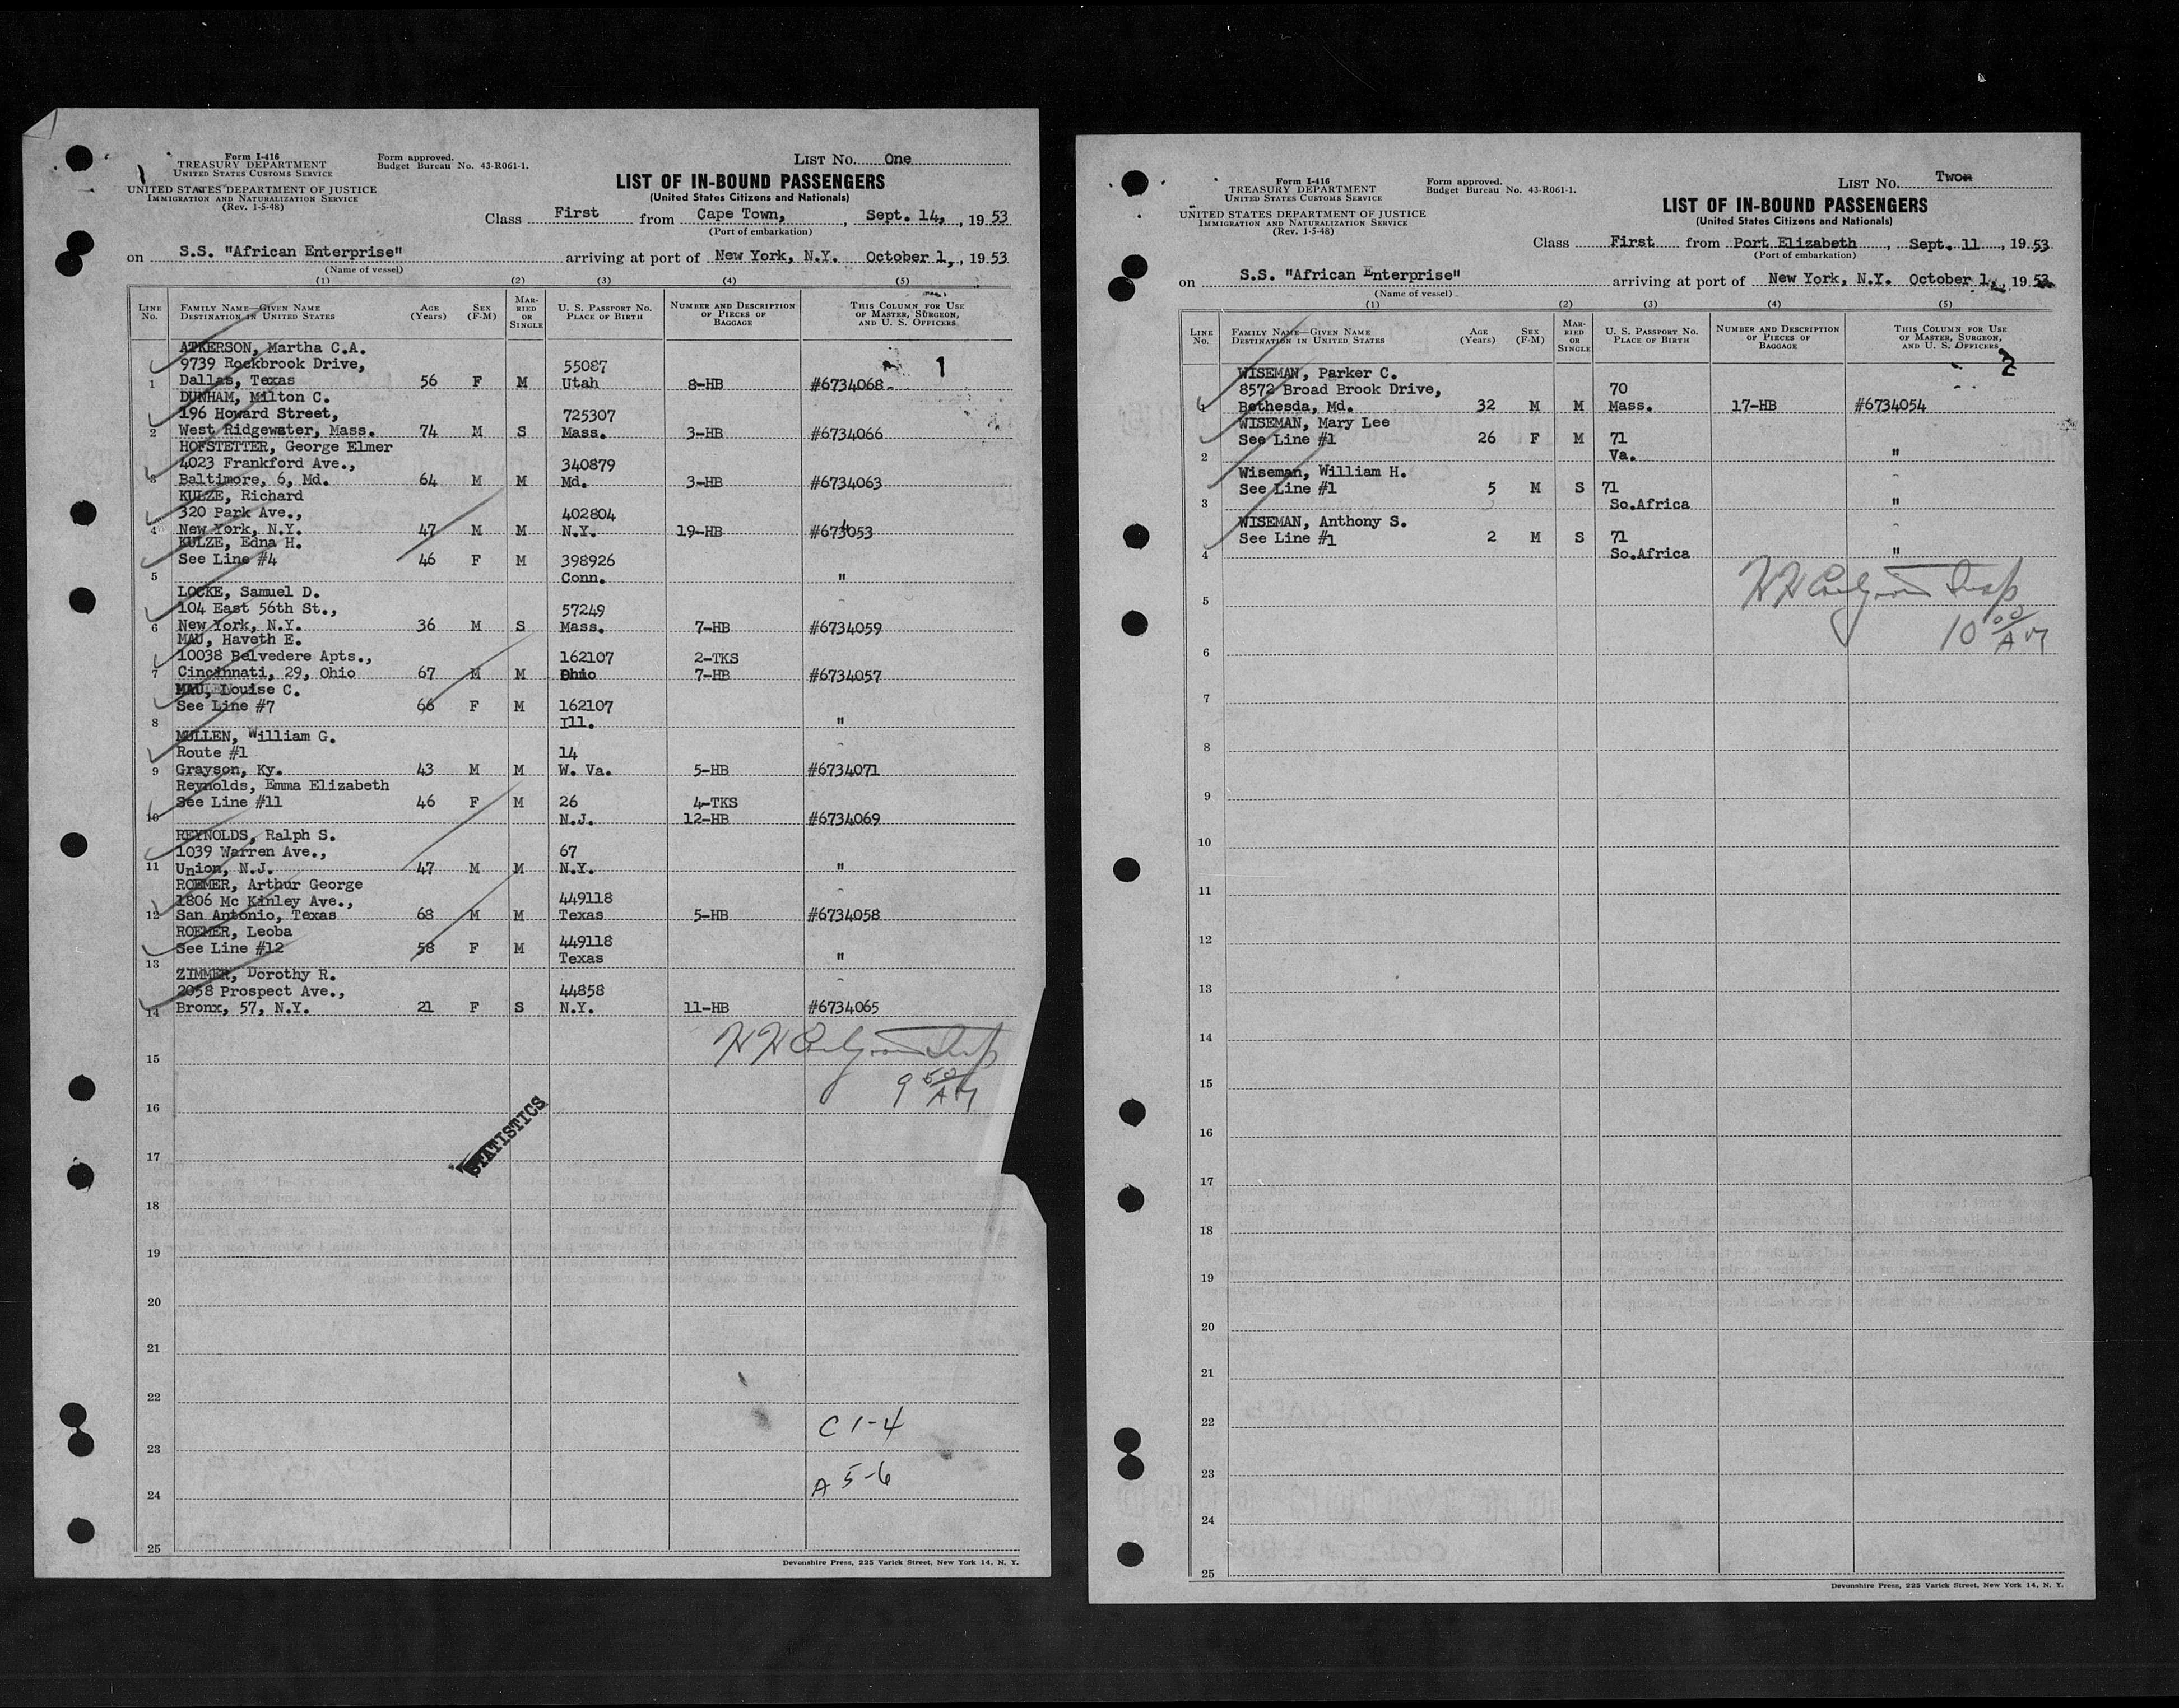 Form I-416
TREASURY DEPARTMENT
UNITED STATES CUSTOMS SERVICE
UNITED STATES DEPARTMENT OF JUSTICE
IMMIGRATION AND NATURALIZATION SERVICE
(Rev. 1-5-48)
Form approved.
Budget Bureau No. 43-R061-1.
LIST No. One
LIST OF IN-BOUND PASSENGERS
(United States Citizens and Nationals)
Class First from Cape Town, , Sept. 14, , 1953
(Port of embarkation)
on S.S. "African Enterprise" arriving at port of New York, N.Y. October 1, , 1953
(Name of vessel)
(1) (2) (3) (4) (5)
LINE No. FAMILY NAME—GIVEN NAME DESTINATION IN UNITED STATES AGE (Years) SEX (F-M) MARRIED OR SINGLE U. S. PASSPORT No. PLACE OF BIRTH NUMBER AND DESCRIPTION OF PIECES OF BAGGAGE THIS COLUMN FOR USE OF MASTER, SURGEON, AND U. S. OFFICERS
1
ATKERSON, Martha C.A.
9739 Rockbrook Drive, 55087
1 Dallas, Texas 56 F M Utah 8-HB #6734068
DUNHAM, Milton C.
196 Howard Street, 725307
2 West Ridgewater, Mass. 74 M S Mass. 3-HB #6734066
HOFSTETTER, George Elmer
4023 Frankford Ave., 340879
3 Baltimore, 6, Md. 64 M M Md. 3-HB #6734063
KULZE, Richard
320 Park Ave., 402804
4 New York, N.Y. 47 M M N.Y. 19-HB #6734053
KULZE, Edna H.
See Line #4 46 F M 398926
5 Conn. "
LOCKE, Samuel D.
104 East 56th St., 57249
6 New York, N.Y. 36 M S Mass. 7-HB #6734059
MAU, Haveth E.
10038 Belvedere Apts., 162107 2-TKS
7 Cincinnati, 29, Ohio 67 M M Ohio 7-HB #6734057
MAU, Louise C.
See Line #7 66 F M 162107
8 Ill. "
MULLEN, William G.
Route #1 14
9 Grayson, Ky. 43 M M W. Va. 5-HB #6734071
Reynolds, Emma Elizabeth
See Line #11 46 F M 26 4-TKS
10 N.J. 12-HB #6734069
REYNOLDS, Ralph S.
1039 Warren Ave., 67
11 Union, N.J. 47 M M N.Y. "
ROEMER, Arthur George
1806 Mc Kinley Ave., 449118
12 San Antonio, Texas 68 M M Texas 5-HB #6734058
ROEMER, Leoba
See Line #12 58 F M 449118
13 Texas "
ZIMMER, Dorothy R.
2058 Prospect Ave., 44858
14 Bronx, 57, N.Y. 21 F S N.Y. 11-HB #6734065
15
9 50 AM
16
STATISTICS
17
18
19
20
21
22
C 1-4
23
A 5-6
24
25
Devonshire Press, 225 Varick Street, New York 14, N. Y.
Form I-416
TREASURY DEPARTMENT
UNITED STATES CUSTOMS SERVICE
UNITED STATES DEPARTMENT OF JUSTICE
IMMIGRATION AND NATURALIZATION SERVICE
(Rev. 1-5-48)
Form approved.
Budget Bureau No. 43-R061-1.
LIST No. Two
LIST OF IN-BOUND PASSENGERS
(United States Citizens and Nationals)
Class First from Port Elizabeth , Sept. 11 , 1953
(Port of embarkation)
on S.S. "African Enterprise" arriving at port of New York, N.Y. October 1, , 1953
(Name of vessel)
(1) (2) (3) (4) (5)
LINE No. FAMILY NAME—GIVEN NAME DESTINATION IN UNITED STATES AGE (Years) SEX (F-M) MARRIED OR SINGLE U. S. PASSPORT No. PLACE OF BIRTH NUMBER AND DESCRIPTION OF PIECES OF BAGGAGE THIS COLUMN FOR USE OF MASTER, SURGEON, AND U. S. OFFICERS
2
WISEMAN, Parker C.
8572 Broad Brook Drive, 70
1 Bethesda, Md. 32 M M Mass. 17-HB #6734054
WISEMAN, Mary Lee
See Line #1 26 F M 71
2 Va. "
Wiseman, William H.
See Line #1 5 M S 71
3 So.Africa "
WISEMAN, Anthony S.
See Line #1 2 M S 71
4 So.Africa "
5
10 00 AM
6
7
8
9
10
11
12
13
14
15
16
17
18
19
20
21
22
23
24
25
Devonshire Press, 225 Varick Street, New York 14, N. Y.